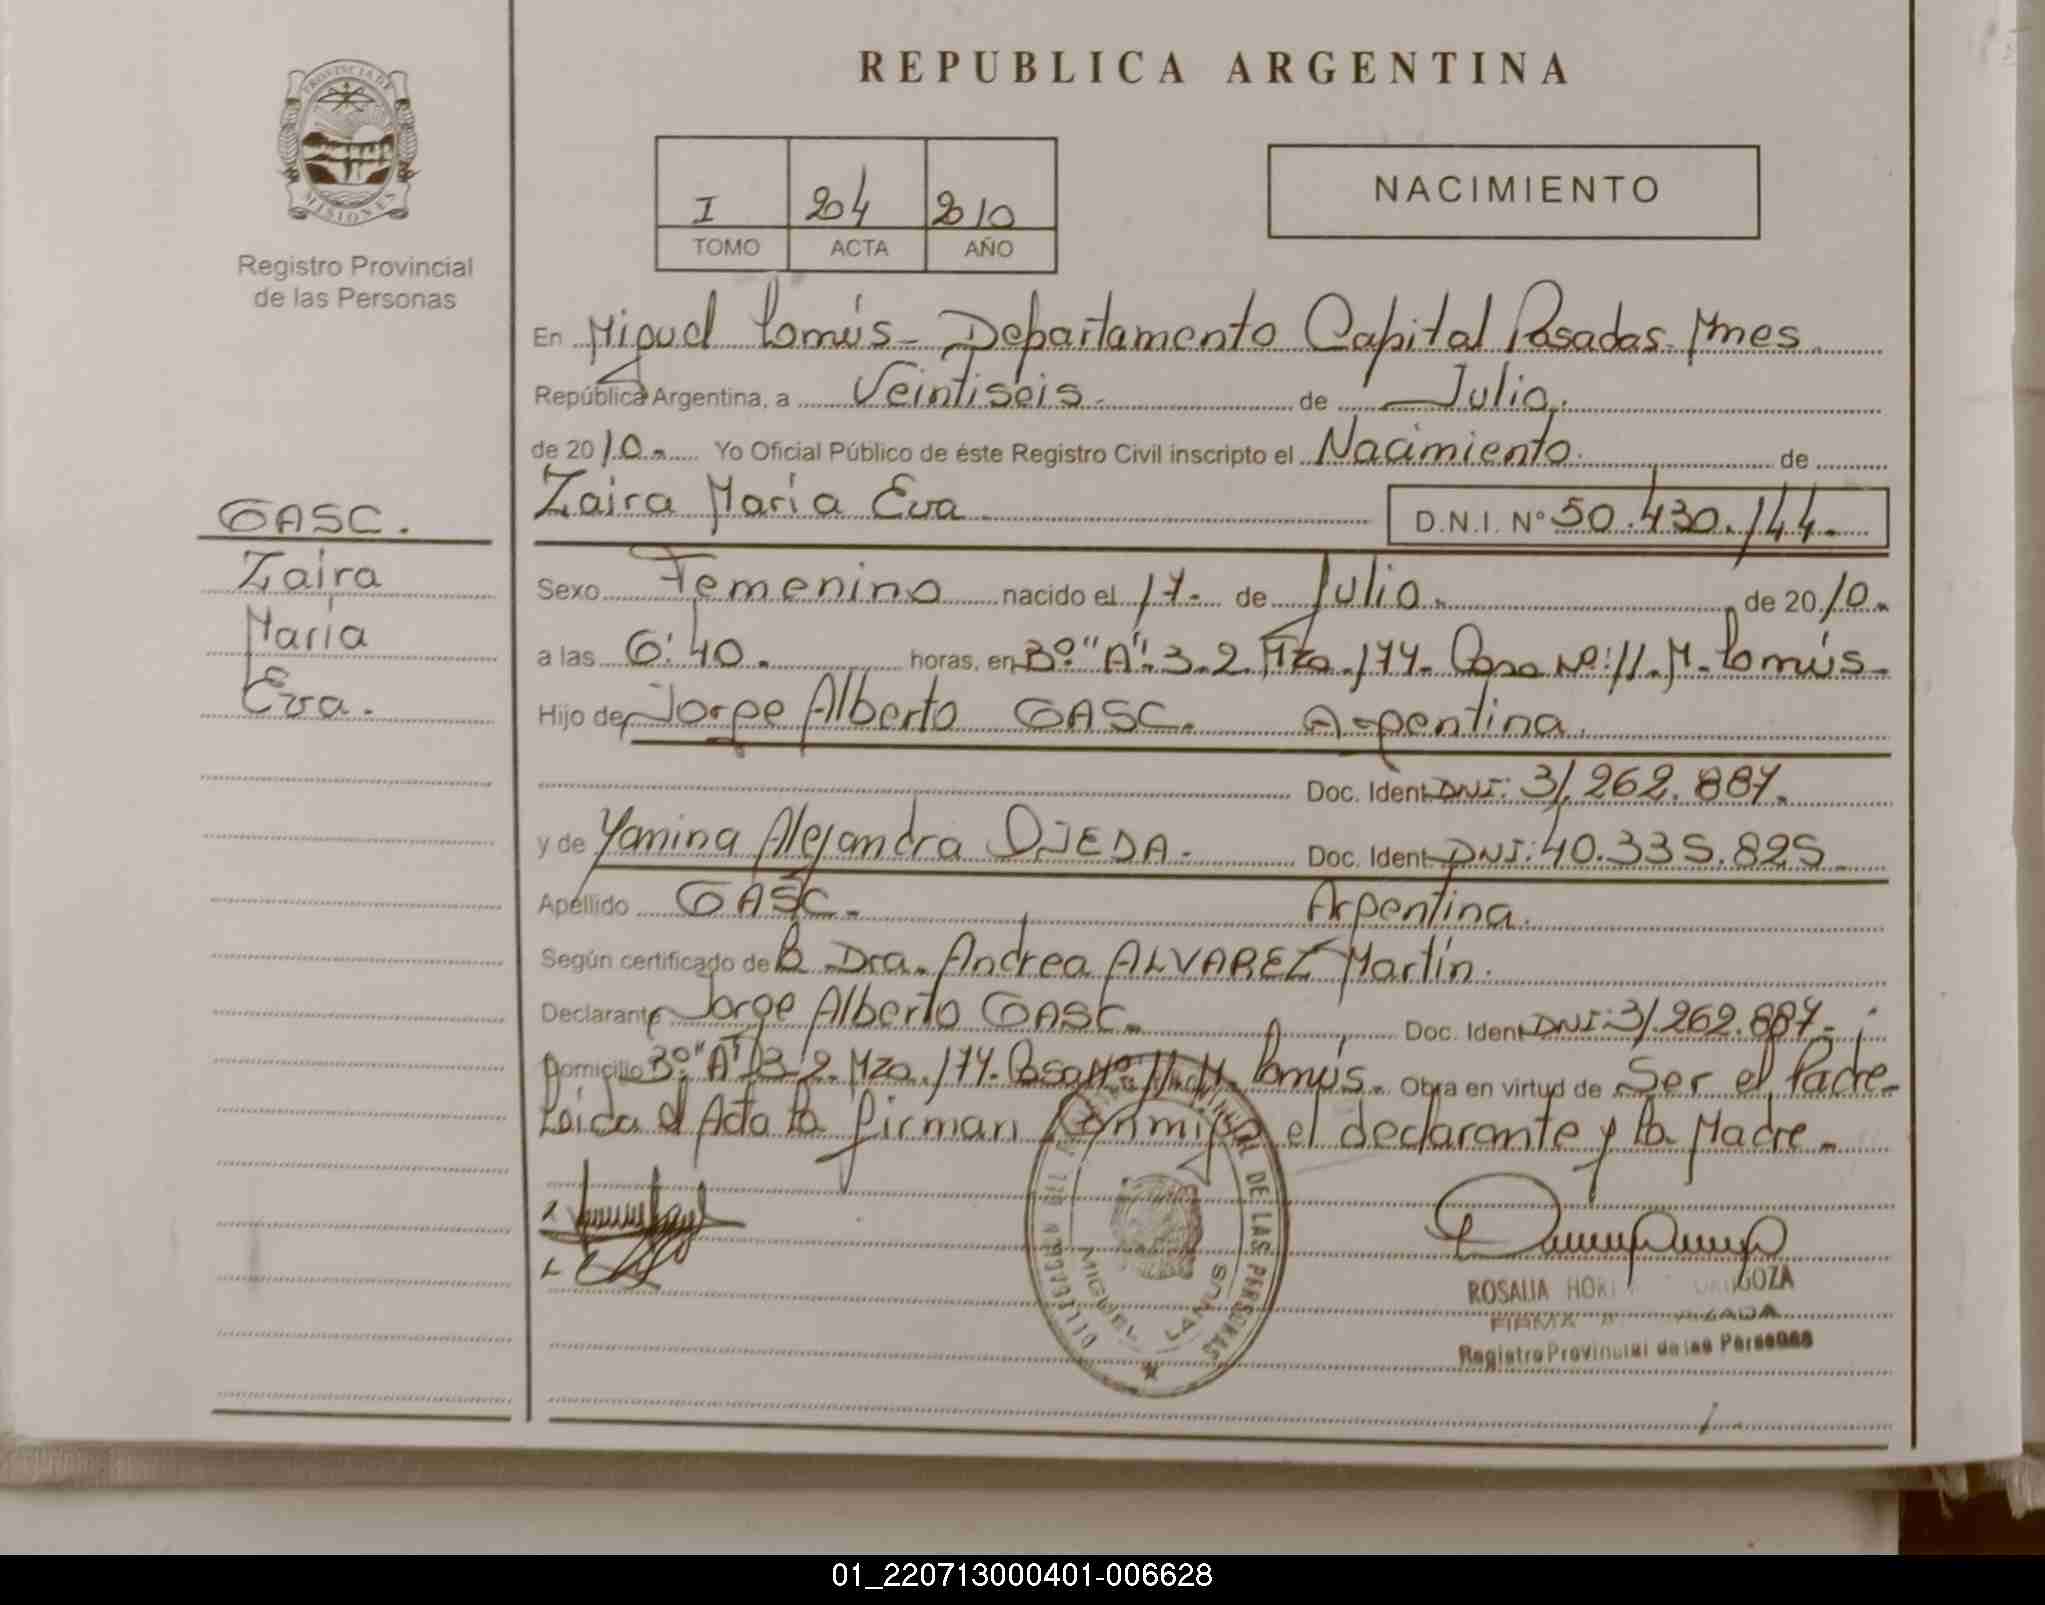 REPUBLICA ARGENTINA
PROVINCIA DE MISIONES
Registro Provincial
de las Personas
I 204 2010
TOMO ACTA AÑO
NACIMIENTO
En Miguel Lanús - Departamento Capital Posadas - Mnes
República Argentina, a Veintiséis - de Julio.
de 2010 - Yo Oficial Público de éste Registro Civil inscripto el Nacimiento de
Zaira María Eva D.N.I. Nº 50.430.144-
GASC.
Zaira
María
Eva.
Sexo Femenino nacido el 17 - de Julio. de 2010.
a las 6:40. horas, en Bº "A" 3.2. Mza. 174. Casa Nº: 11. M. Lanús-
Hijo de Jorge Alberto GASC. Argentina.
Doc. Ident. DNI: 31.262.887.
y de Yanina Alejandra OJEDA. Doc. Ident. DNI: 40.335.825
Apellido GASC - Argentina.
Según certificado de la Dra. Andrea ALVAREZ Martín.
Declarante Jorge Alberto GASC. Doc. Ident. DNI: 31.262.887-
Domicilio Bº "A" 3.2. Mza. 174. Casa Nº 11. M. Lanús. Obra en virtud de Ser el Padre-
Leída el Acta la firman conmigo el declarante y la Madre-
DE LAS PERSONAS
MIGUEL LANUS
ROSALIA
Registro Provincial de las Personas
01_220713000401-006628